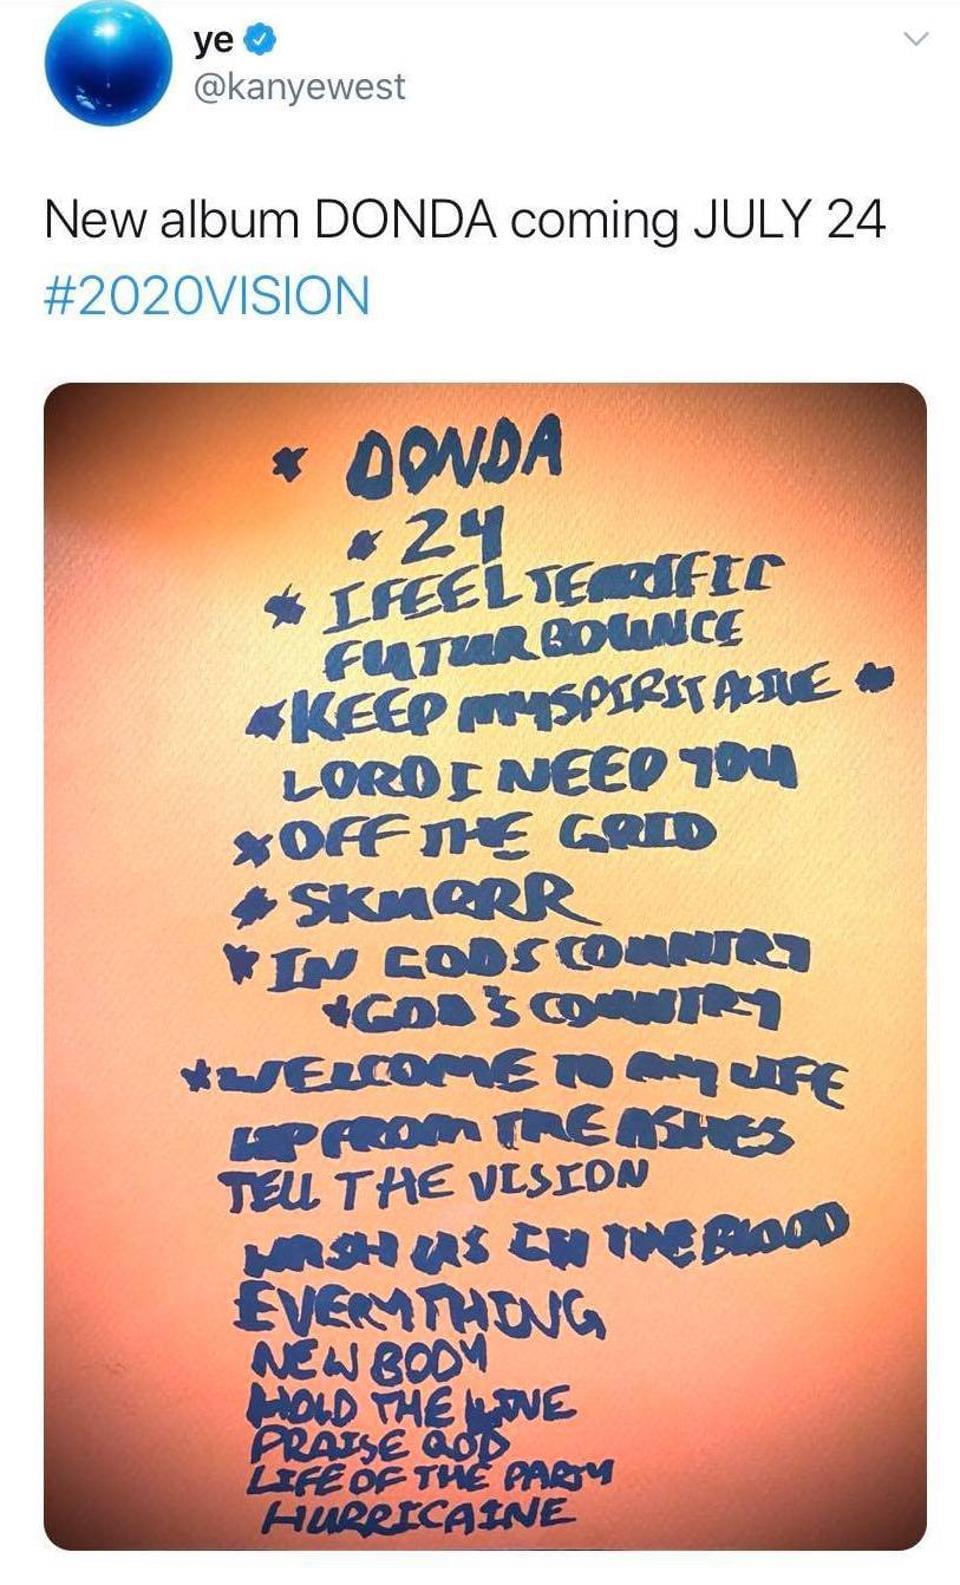 ye
@kanyewest
New album DONDA coming JULY 24
#2020VISION
* DONDA
* 24
* I FEEL TERRIFIC
FUTUR BOUNCE
* KEEP MY SPIRIT ALIVE *
LORD I NEED YOU
* OFF THE GRID
* SKURRR
* IN GODS COUNNTRY
* GOD'S COUNNTRY
* WELCOME TO MY LIFE
UP FROM THE ASHES
TELL THE VISION
WASH US IN THE BLOOD
EVERYTHING
NEW BODY
HOLD THE LINE
PRAISE GOD
LIFE OF THE PARTY
HURRICAINE